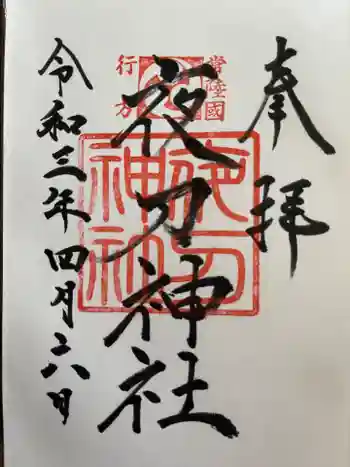 奉拝
常陸國
行方
夜刀神社
夜刀神社
令和三年四月二六日